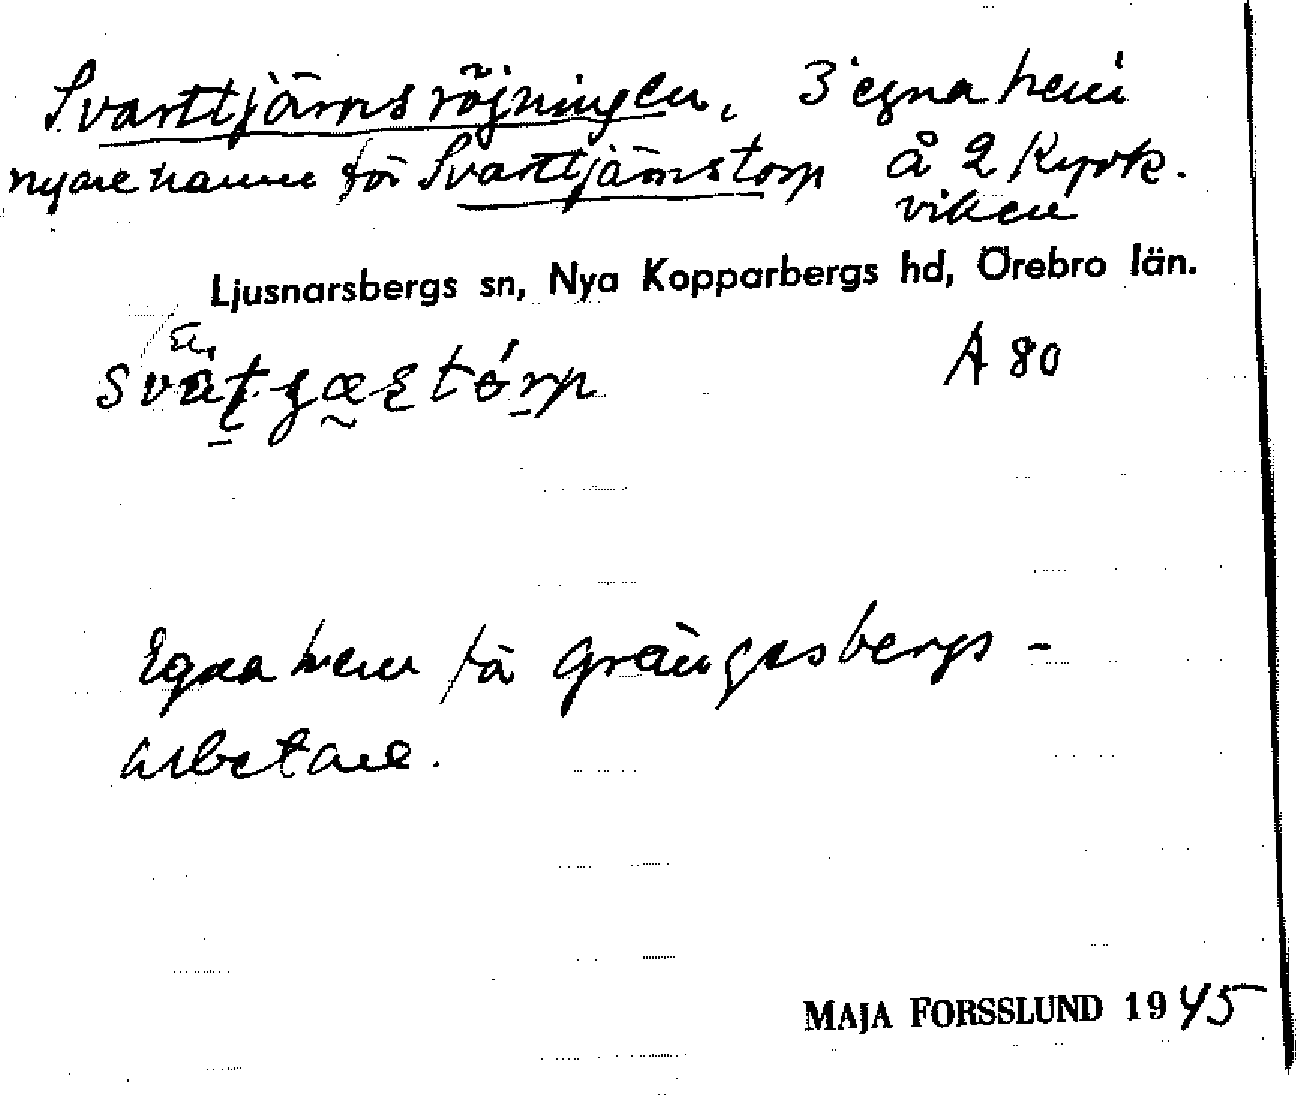 Svarttjärnsröjningen, 3 egna hem
nyare namn för Svarttjärnstorp å 2 Kyrk.
viken
Ljusnarsbergs sn, Nya Kopparbergs hd, Örebro län.
A 80
Egna hem för Grängesbergs-
arbetare.
MAJA FORSSLUND 1945